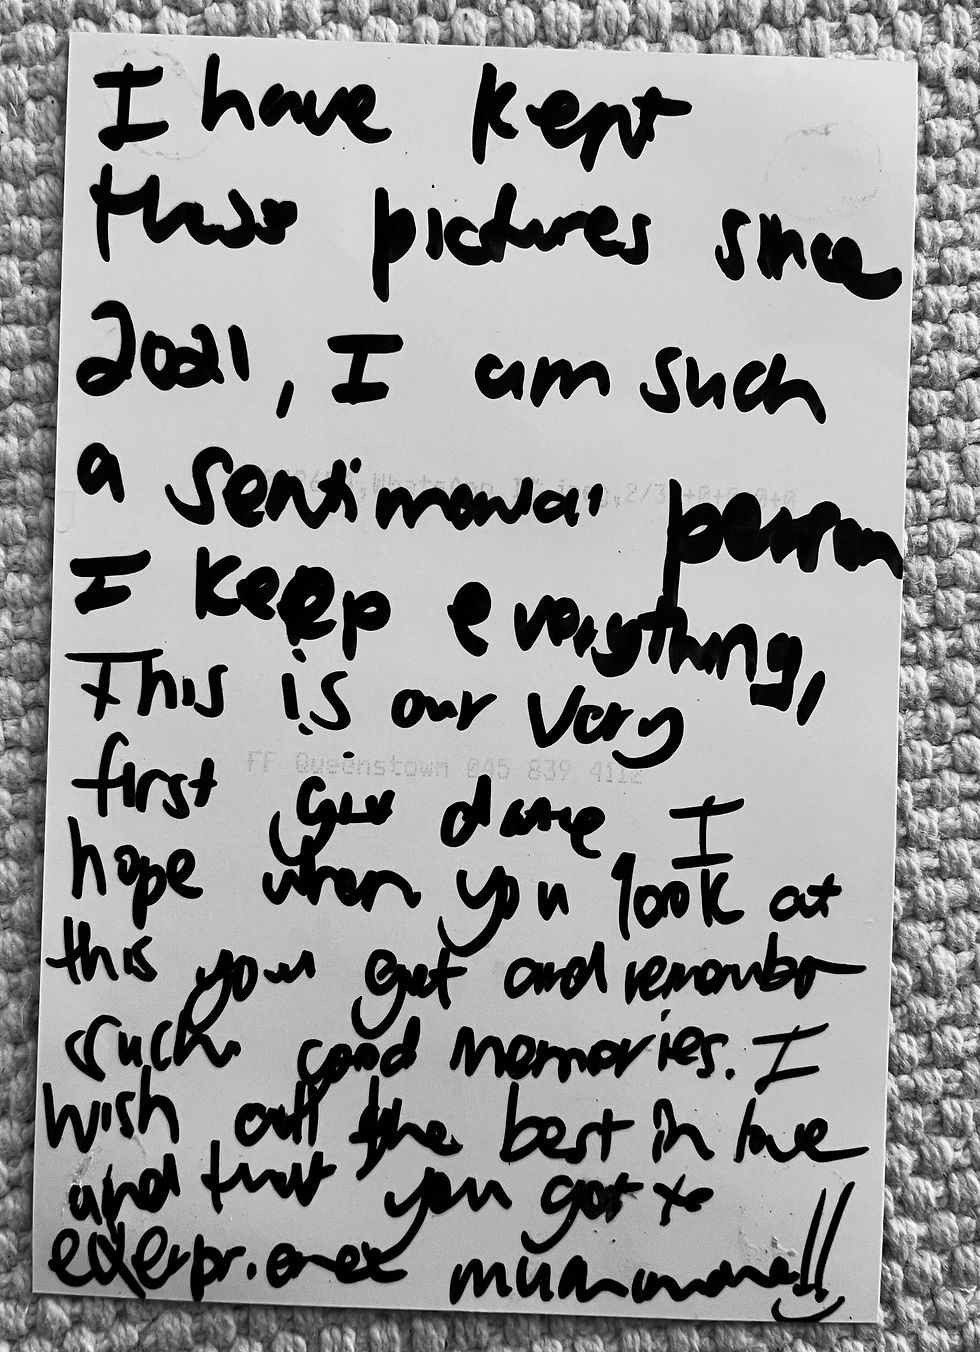 I have kept
these pictures since
2021, I am such
a sentimental person
I keep everything,
This is our very
first date, I
FF Queenstown 045 839 4112
hope when you look at
this you get and remember
such good memories. I
wish all the best in love
and that you get to
more!!